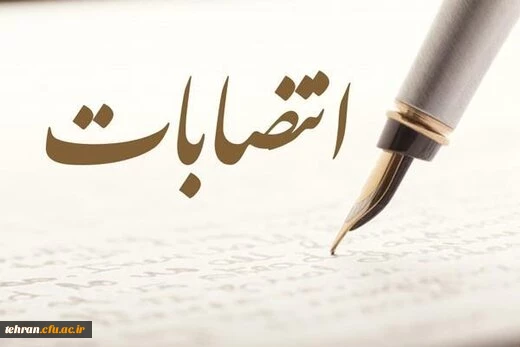 انتصابات
tehran.cfu.ac.ir